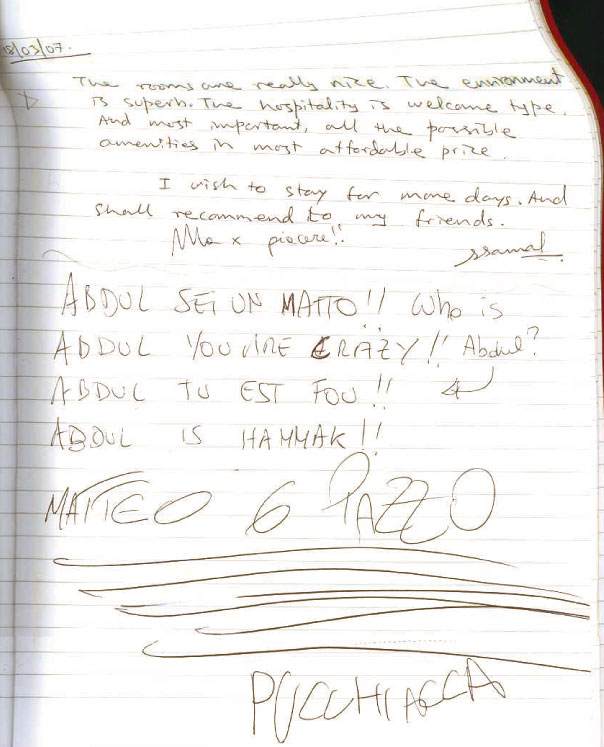 18/03/07.
The rooms are really nice. The environment
is superb. The hospitality is welcome type.
And most important, all the possible
amenities in most affordable price.
I wish to stay for more days. And
shall recommend to my friends.
x piacere!!
ssamal.
ABDUL SEI UN MATTO!! Who is
ABDUL YOU ARE CRAZY!! Abdul?
ABDUL TU EST FOU!!
ABDUL IS HAMMAK!!
MATTEO 6 PAZZO
PUCCHIACCA